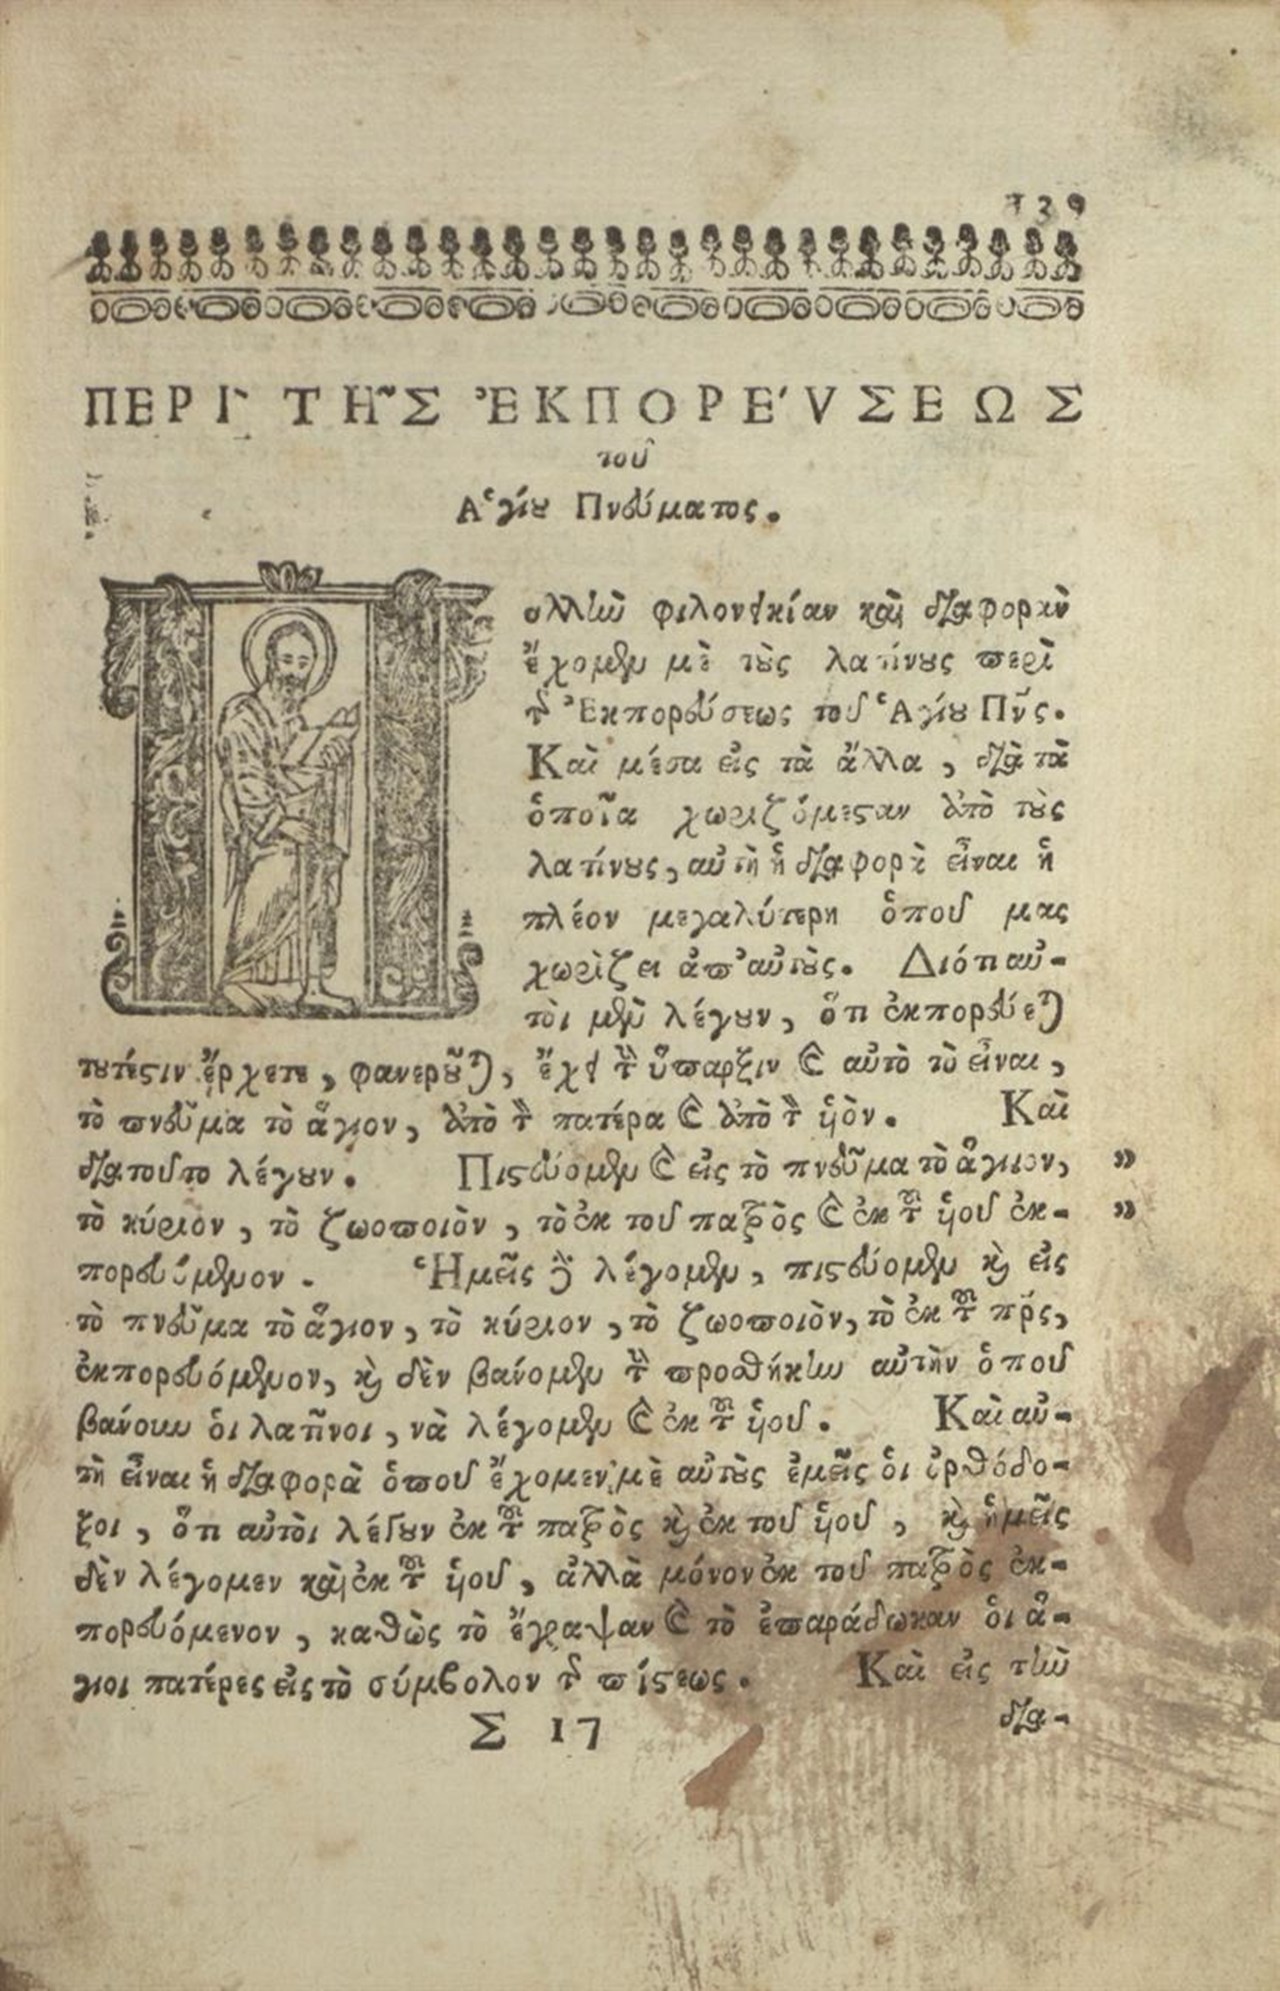 139
ΠΕΡΙ` ΤΗ῀Σ ἘΚΠΟΡΕΎΣΕΩΣ
τοῦ
Ἁγίου Πνεύματος.
Πολλὴν φιλονεικίαν καὶ διαφορὰν
ἔχομεν μὲ τοὺς λατίνους περὶ
τῆς Ἐκπορεύσεως τοῦ Ἁγίου Πν̃ς.
Καὶ μέσα εἰς τὰ ἄλλα, διὰ τὰ
ὁποῖα χωριζόμεσαν ἀπὸ τοὺς
λατίνους, αὐτὴ ἡ διαφορὰ εἶναι ἡ
πλέον μεγαλύτερη ὁποῦ μας
χωρίζει ἀπ' αὐτοὺς. Διότι αὐ-
τοὶ μὲν λέγουν, ὅτι ἐκπορεύεται
τουτέστιν ἔρχετε, φανεροῦται, ἔχει τὴν ὕπαρξιν καὶ αὐτὸ τὸ εἶναι,
τὸ πνεῦμα τὸ ἅγιον, ἀπὸ τὸν πατέρα καὶ ἀπὸ τὸν ὑὸν. Καὶ
διατοῦτο λέγουν. Πιστεύομεν καὶ εἰς τὸ πνεῦμα τὸ ἅγιον, »
τὸ κύριον, τὸ ζωοποιὸν, τὸ ἐκ τοῦ πατρὸς καὶ ἐκ τοῦ ὑοῦ ἐκ- »
πορευόμενον. Ἡμεῖς δὲ λέγομεν, πιστεύομεν καὶ εἰς
τὸ πνεῦμα τὸ ἅγιον, τὸ κύριον, τὸ ζωοποιὸν, τὸ ἐκ τοῦ πρ̃ς,
ἐκπορευόμενον, καὶ δὲν βάνομεν τὴν προσθήκην αὐτὴν ὁποῦ
βάνουν ὁι λατῖνοι, νὰ λέγομεν καὶ ἐκ τοῦ ὑοῦ. Καὶ αὐ-
τὴ εἶναι ἡ διαφορὰ ὁποῦ ἔχομεν μὲ αὐτοὺς ἐμεῖς ὁι ὀρθόδο-
ξοι, ὅτι αὐτοὶ λέγουν ἐκ τοῦ πατρὸς καὶ ἐκ τοῦ ὑοῦ, καὶ ἡμεῖς
δὲν λέγομεν καὶ ἐκ τοῦ ὑοῦ, ἀλλὰ μόνον ἐκ τοῦ πατρὸς ἐκ-
πορευόμενον, καθὼς τὸ ἔγραψαν καὶ τὸ ἐπαράδωκαν ὁι ἅ-
γιοι πατέρες εἰς τὸ σύμβολον τῆς πίστεως. Καὶ εἰς τὴν
Σ 17 δια-